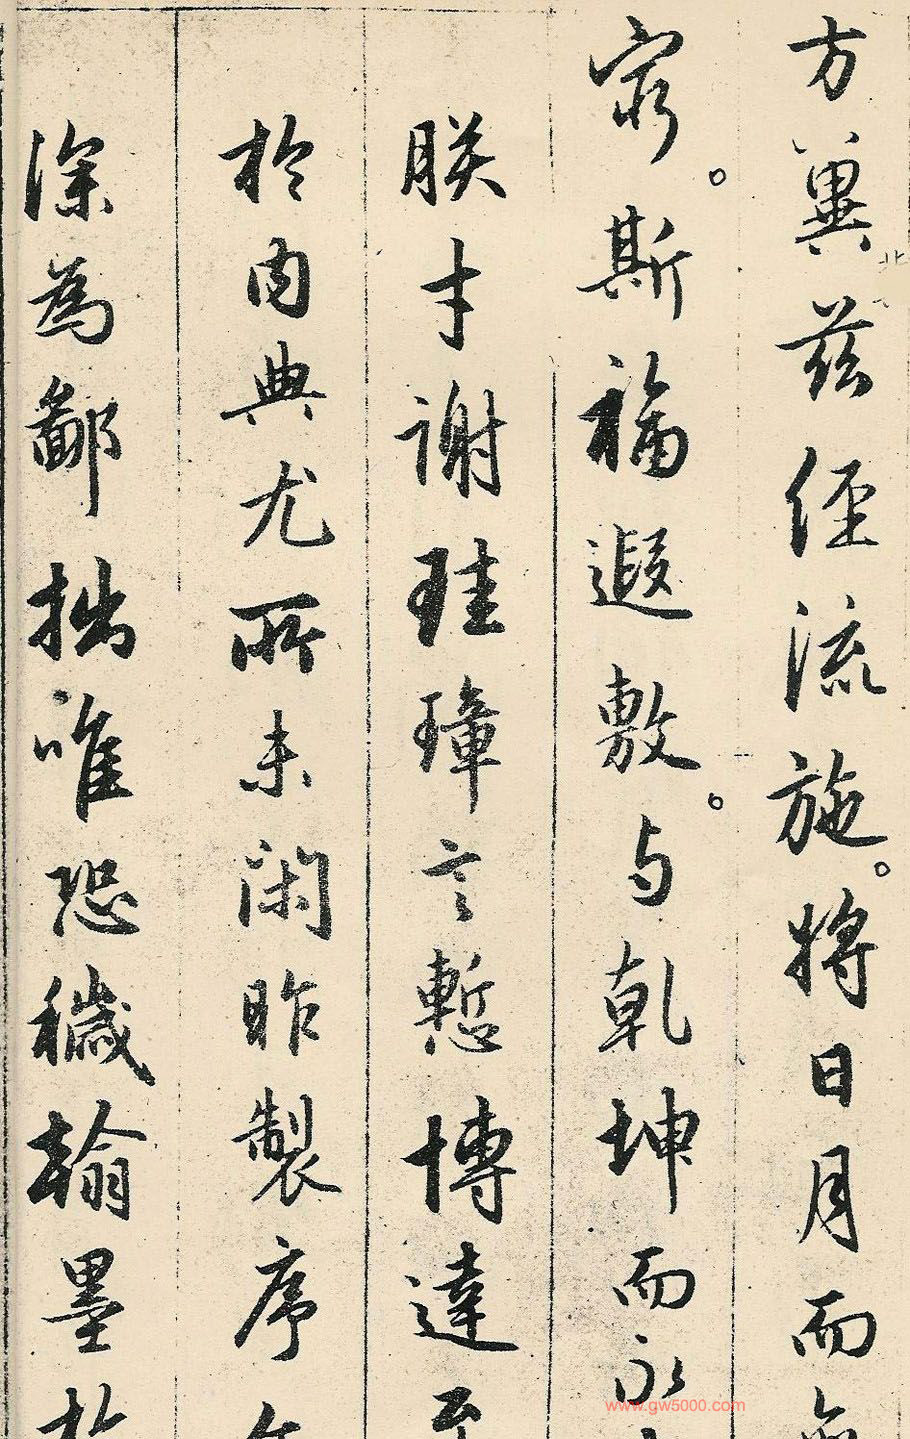 方冀茲經流施。將日月而無
窮。斯福遐敷。与乾坤而永
朕才謝珪璋言慙博達至
於内典尤所未閑昨製序
深為鄙拙唯恐穢翰墨於
www.gw5000.com